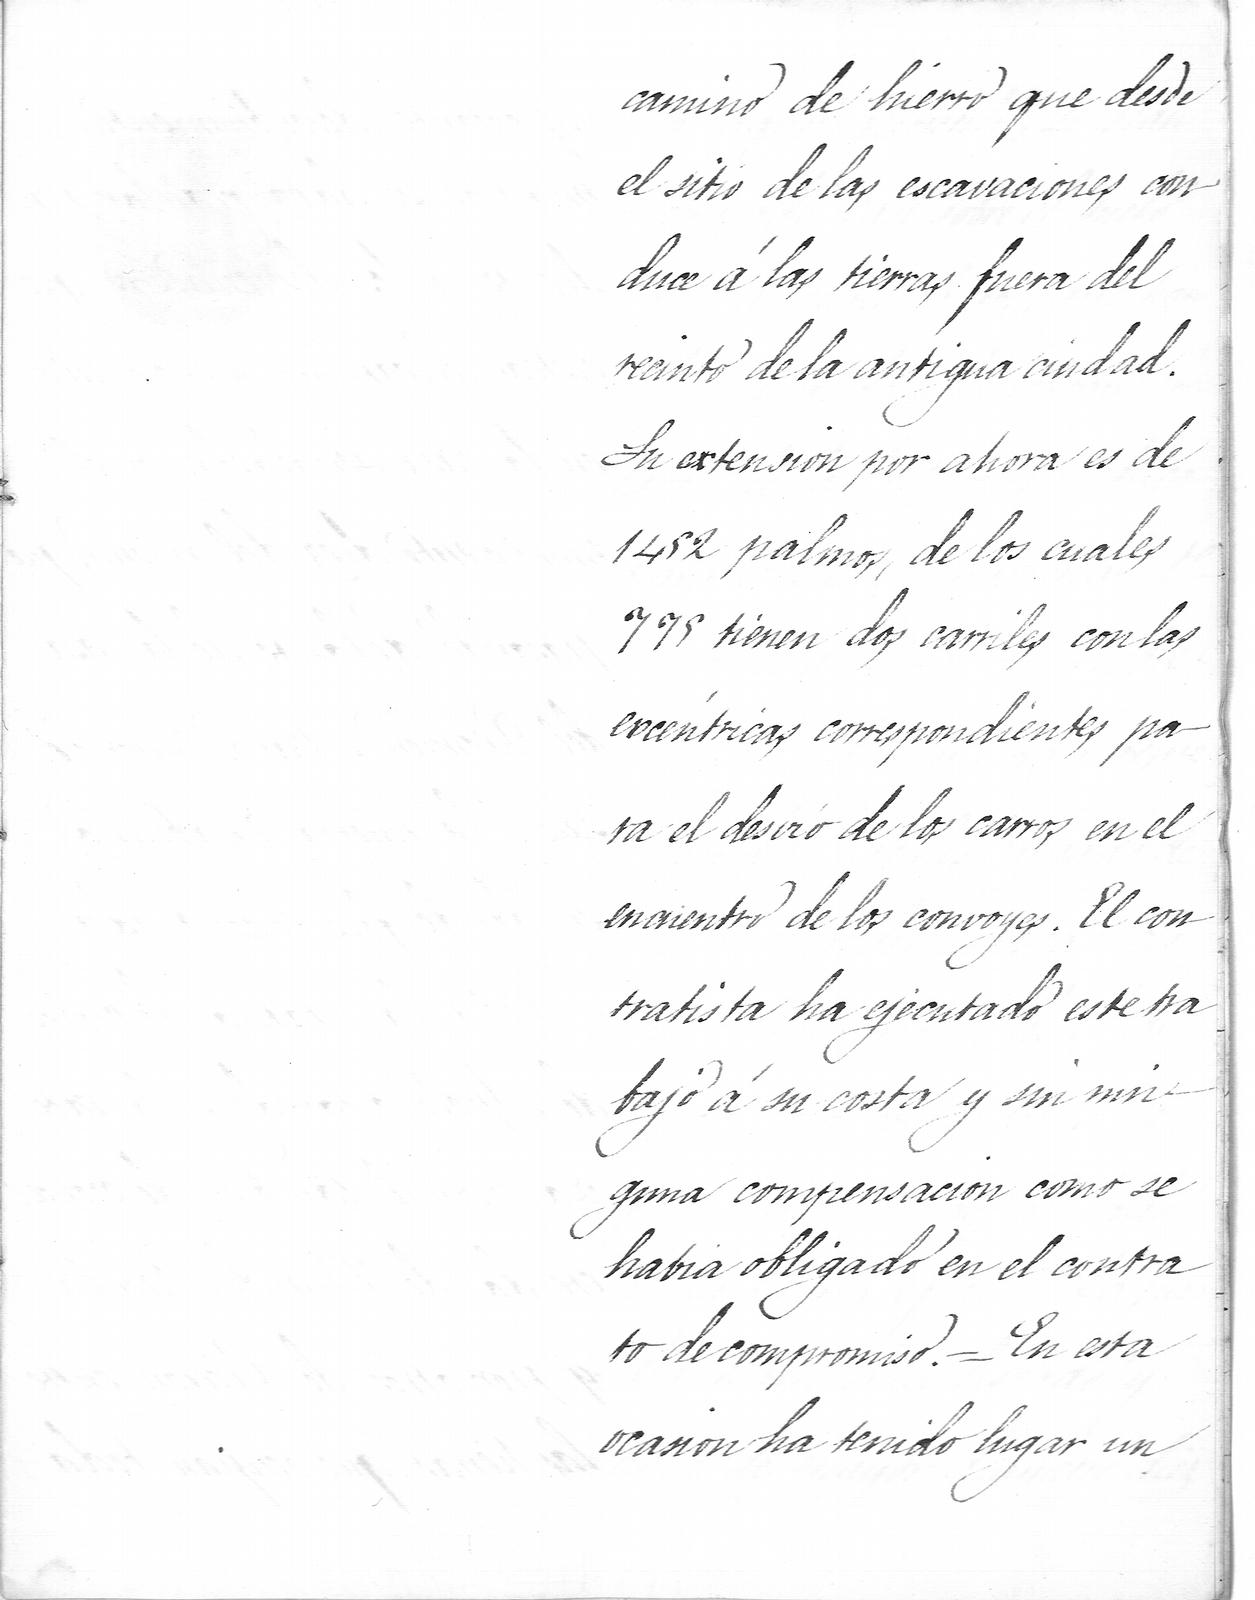 camino de hierro que desde
el sitio de las escavaciones con
duce á las tierras fuera del
recinto de la antigua ciudad.
Su extension por ahora es de
1452 palmos, de los cuales
775 tienen dos carriles con las
excéntricas correspondientes pa-
ra el desvio de los carros en el
encuentro de los convoyes. El con
tratista ha ejecutado este tra
bajo á su costa y sin nin-
guna compensacion como se
habia obligado en el contra
to de compromiso. = En esta
ocasion ha tenido lugar un